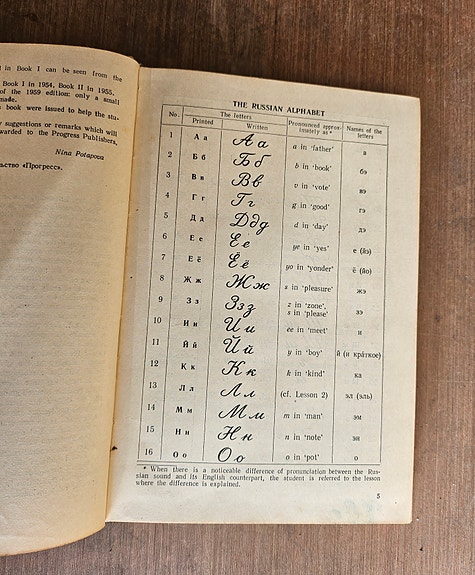 in Book I can be seen from the
Book I in 1954, Book II in 1955,
of the 1959 edition: only a small
made.
book were issued to help the stu-
suggestions or remarks which will
warded to the Progress Publishers,
Nina Potapova
льство «Прогресс».
THE RUSSIAN ALPHABET
No. The letters Pronounced approx- Names of the
Printed Written imately as * letters
1 А а А а a in ‘father’ а
2 Б б Б б b in ‘book’ бэ
3 В в В в v in ‘vote’ вэ
4 Г г Г г g in ‘good’ гэ
5 Д д Д д д d in ‘day’ дэ
6 Е е Е е ye in ‘yes’ е (йэ)
7 Е ё Е ё yo in ‘yonder’ ё (йо)
8 Ж ж Ж ж s in ‘pleasure’ жэ
9 З з З з з z in ‘zone’, зэ
s in ‘please’
10 И и И и ee in ‘meet’ и
11 Й й Й й y in ‘boy’ й (и кра́ткое)
12 К к К к k in ‘kind’ ка
13 Л л Л л (cf. Lesson 2) эл (эль)
14 М м М м m in ‘man’ эм
15 Н н Н н n in ‘note’ эн
16 О о О о o in ‘pot’ о
* When there is a noticeable difference of pronunciation between the Rus-
sian sound and its English counterpart, the student is referred to the lesson
where the difference is explained.
5